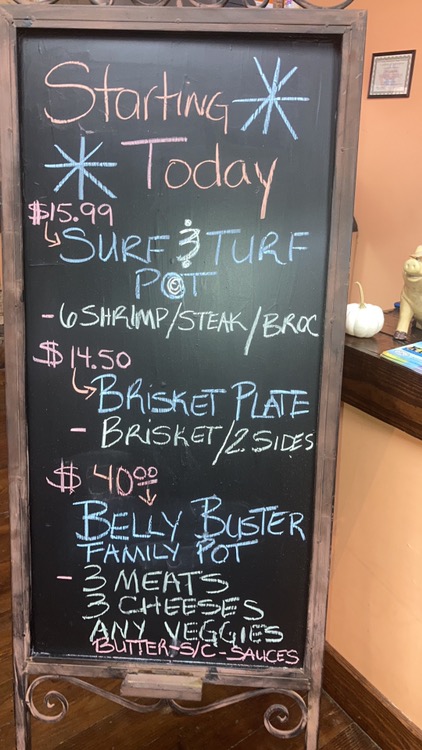 Starting
Today
$15.99
SURF & TURF
POT
- 6 SHRIMP/STEAK/BROC
$14.50
BRISKET PLATE
- BRISKET/2 SIDES
$40.00
BELLY BUSTER
FAMILY POT
- 3 MEATS
3 CHEESES
ANY VEGGIES
BUTTER-S/C-SAUCES